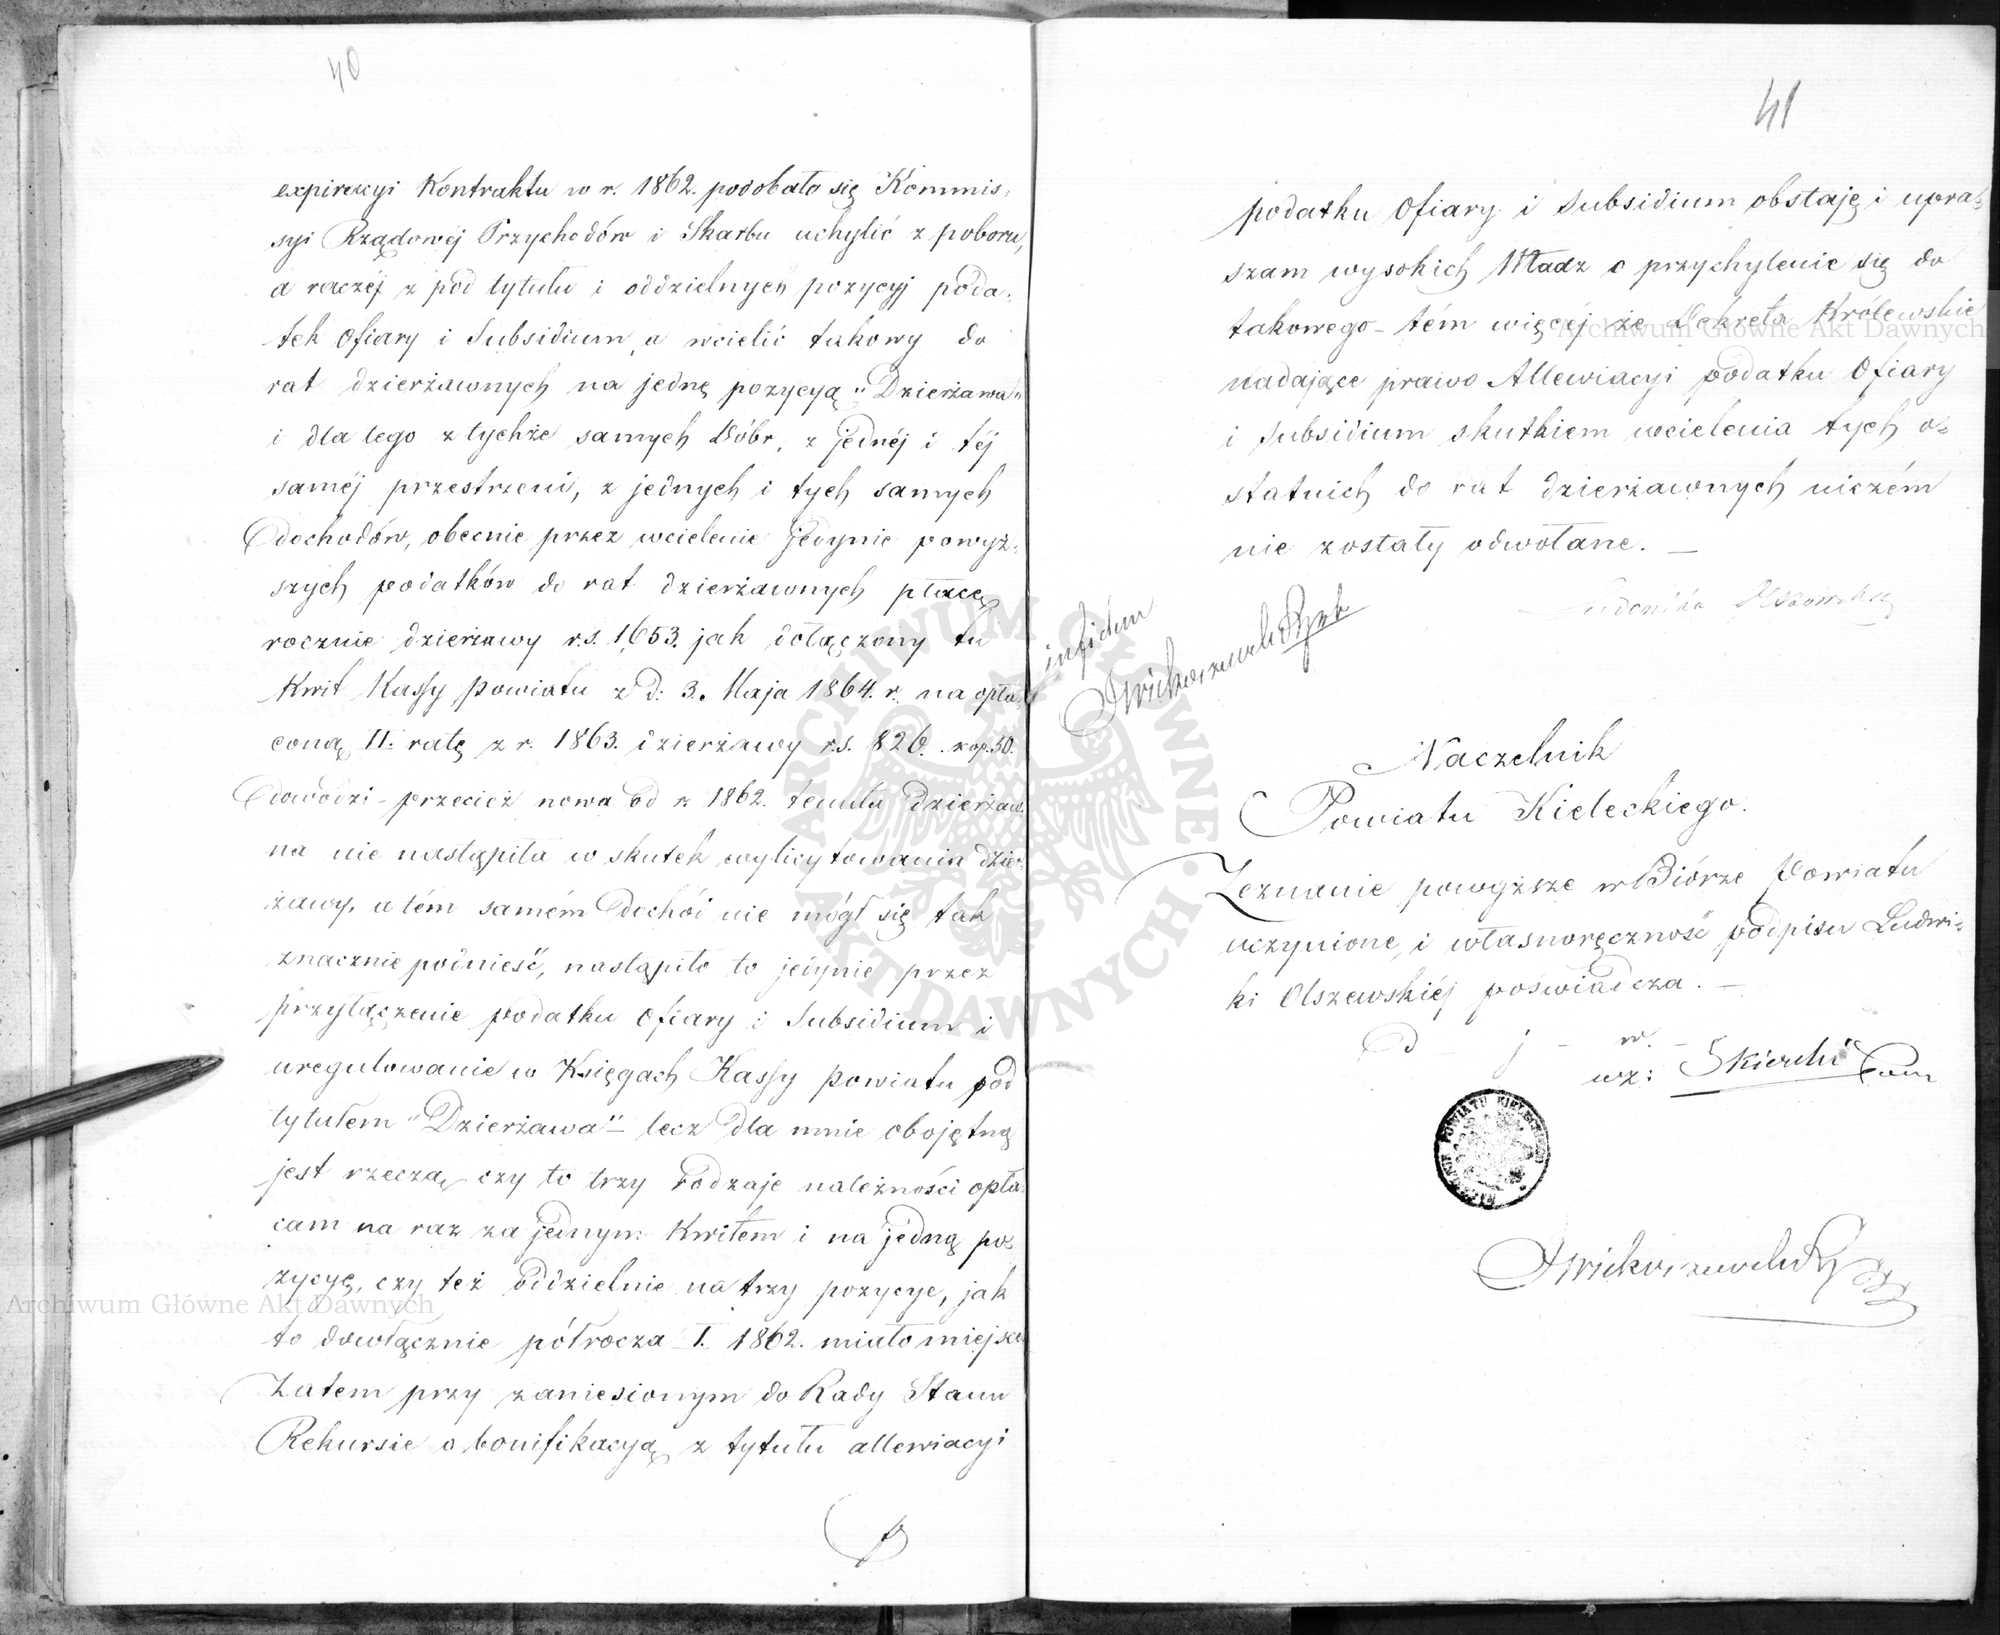 40
expiracyi Kontraktu w r. 1862. podobało się Kommis=
syi Rządowéj Przychodów i Skarbu uchylić z poboru,
a raczéj z pod tytułu i oddzielnych pozycyj poda=
tek Ofiary i Subsidium, a wcielić takowy do
rat dzierżawnych na jednę pozycyą "Dzierżawa"
i dla tego z tychże samych Dóbr, z jednéj i téj
saméj przestrzeni, z jednych i tych samych
Dochodów, obecnie przez wcielenie jedynie powyż=
szych podatków do rat dzierżawnych płacę
rocznie dzierżawy rs. 1,653. jak dołączony tu
Kwit Kassy powiatu z d: 3. Maja 1864. r. na opła=
coną II: ratę z r. 1863. dzierżawy rs. 826. kop. 50.
Dowodzi - przecież nowa od r. 1862. tenuta dzierżaw=
na nie nastąpiła w skutek wylicytowania dzier=
żawy, a tém samém Dochód nie mógł się tak
znacznie podnieść, nastąpiło to jedynie przez
przyłączenie podatku Ofiary i Subsidium i
uregulowanie w Księgach Kassy powiatu pod
tytułem "Dzierżawa" - lecz dla mnie obojętną
jest rzeczą, czy to trzy rodzaje należności opła=
cam na raz za jednym Kwitem i na jedną po=
zycyę, czy też oddzielnie na trzy pozycye, jak
to dowłącznie półrocza I. 1862. miało miejsce
Zatem przy zaniesionym do Rady Stanu
Rekursie o bonifikacyą z tytułu allewiacyi
41
podatku Ofiary i Subsidium obstaję i upra=
szam wysokich Władz o przychylenie się do
takowego - tém więcéj że Dekreta Królewskie
nadające prawo Allewiacyi podatku Ofiary
i Subsidium skutkiem wcielenia tych o=
statnich do rat dzierżawnych niczém
nie zostały odwołane. -
Ludwika Olszewska
in fidem
Naczelnik
Powiatu Kieleckiego.
Zeznanie powyższe w Biórze Powiatu
uczynione, i własnoręczność podpisu Ludwi=
ki Olszewskiéj poświadcza. -
wz:
Archiwum Główne Akt Dawnych
Archiwum Główne Akt Dawnych
ARCHIWUM GŁÓWNE AKT DAWNYCH